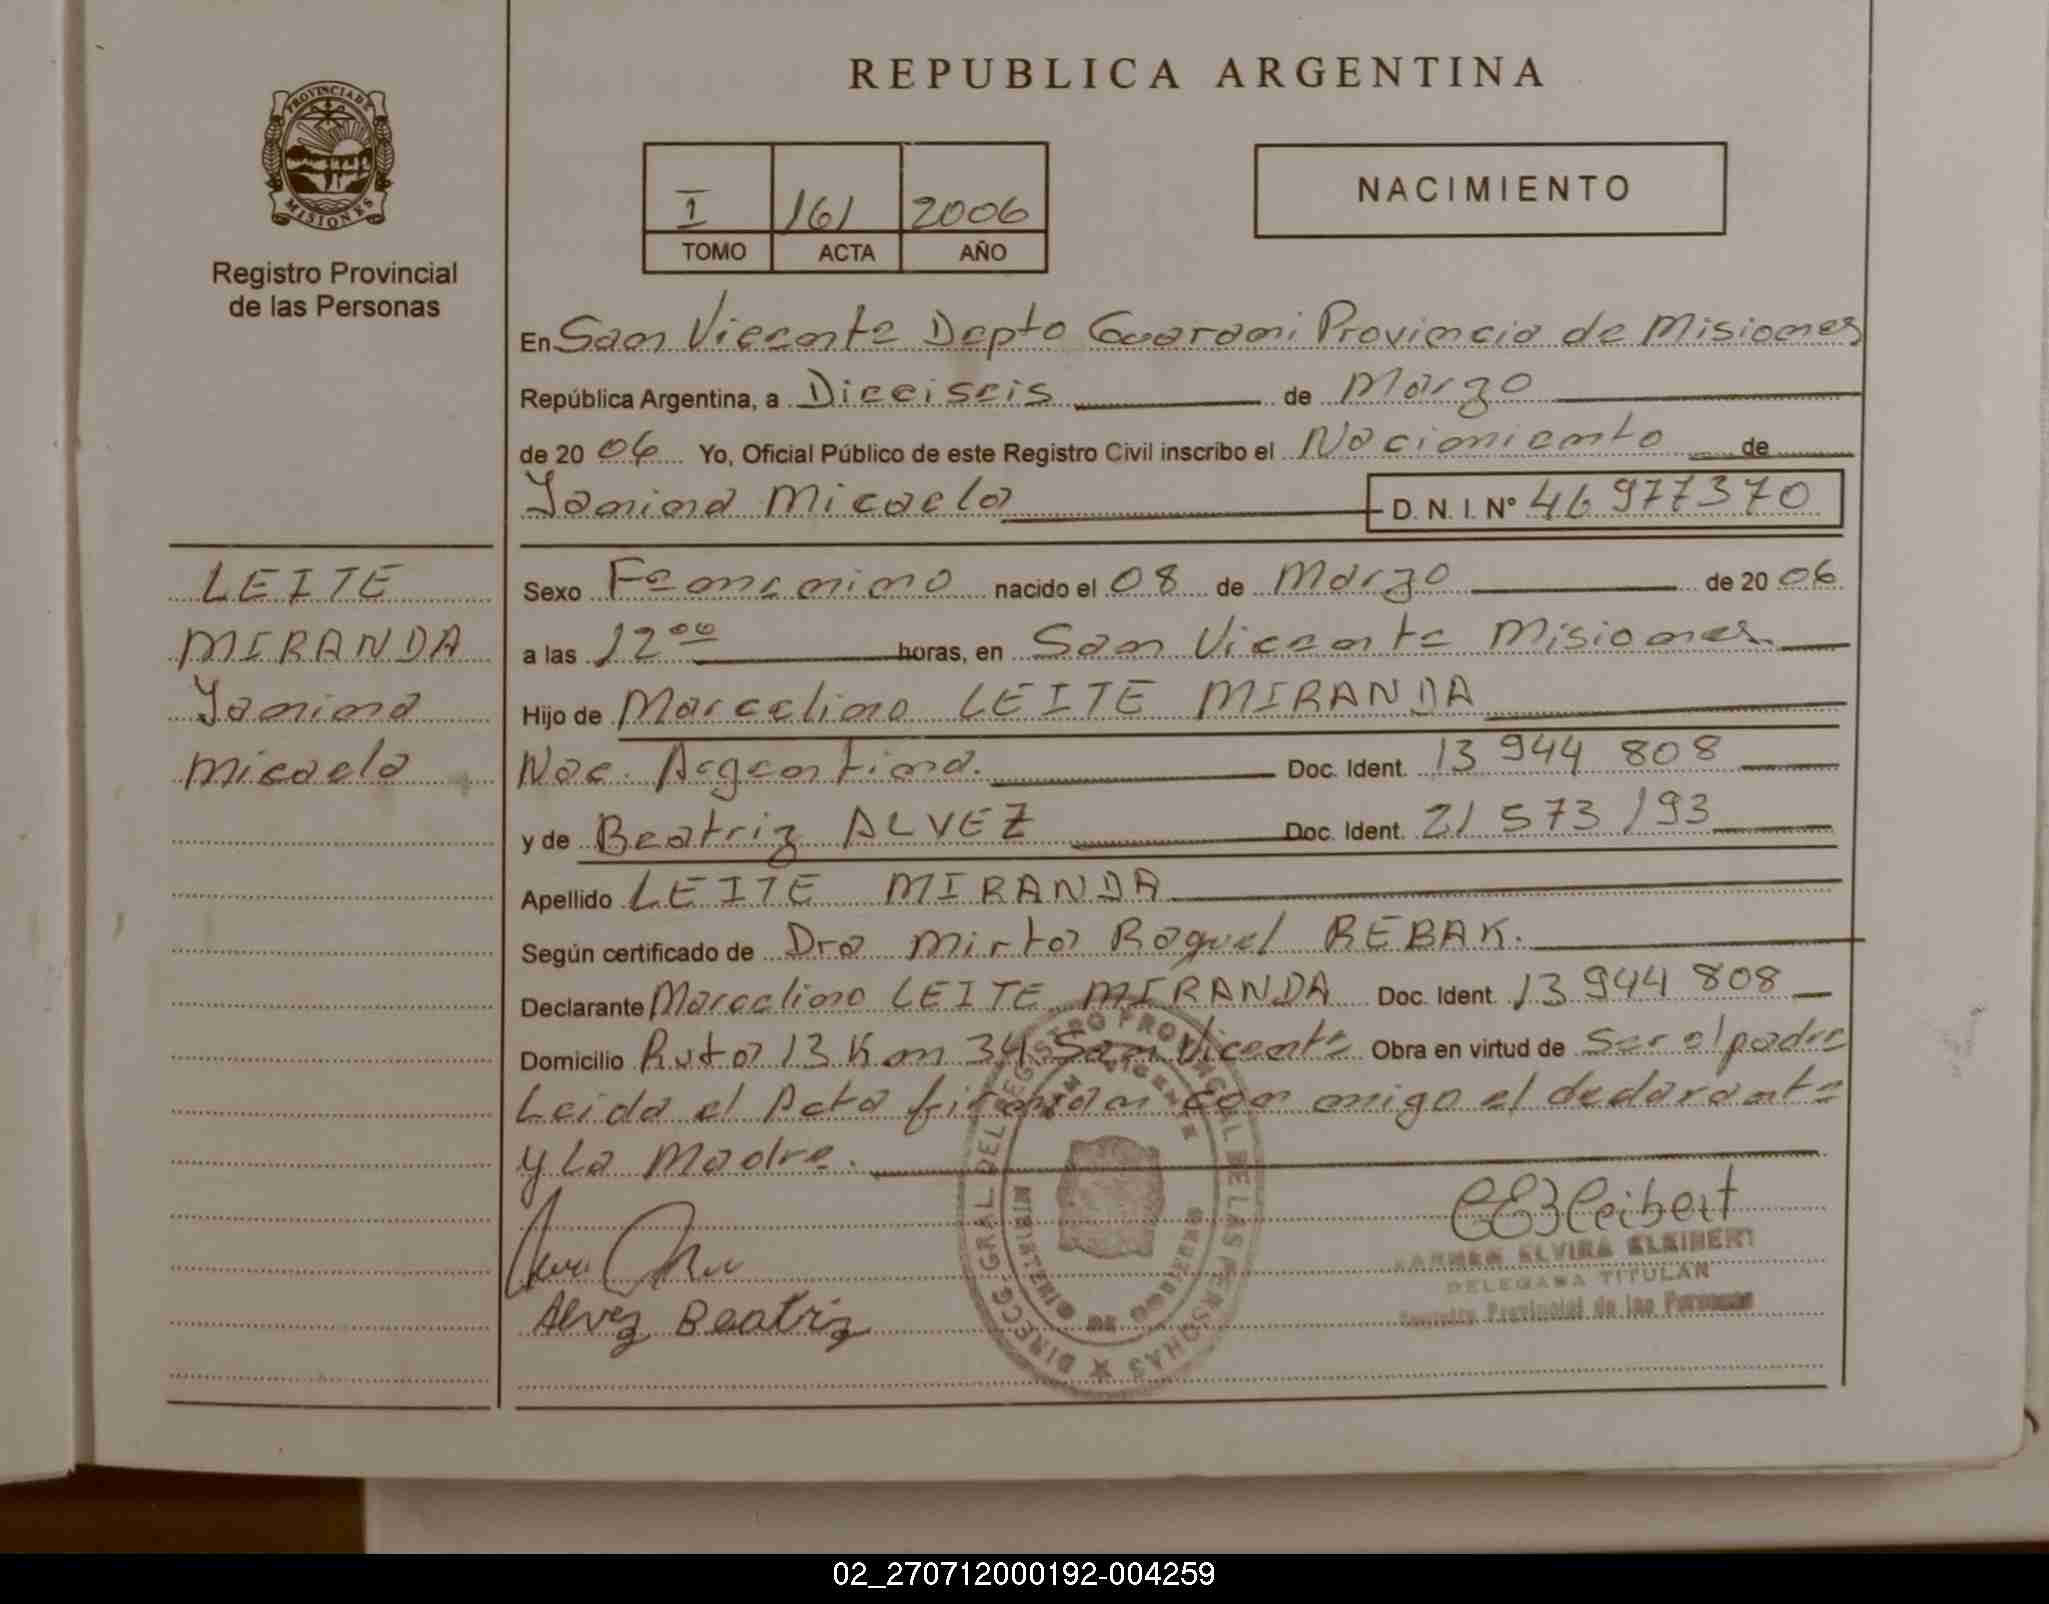 REPUBLICA ARGENTINA
PROVINCIA DE MISIONES
Registro Provincial
de las Personas
I 161 2006
TOMO ACTA AÑO
NACIMIENTO
En San Vicente Depto Guarani Provincia de Misiones
República Argentina, a Dieciseis de Marzo
de 20 06 Yo, Oficial Público de este Registro Civil inscribo el Nacimiento de
Yanina Micaela D. N. I. N° 46 977370
LEITE
MIRANDA
Yanina
Micaela
Sexo Femenino nacido el 08 de Marzo de 20 06
a las 12 00 horas, en San Vicente Misiones
Hijo de Marcelino LEITE MIRANDA
Nac. Argentina. Doc. Ident. 13 944 808
y de Beatriz ALVEZ Doc. Ident. 21 573 193
Apellido LEITE MIRANDA
Según certificado de Dra Mirta Raquel REBAK.
Declarante Marcelino LEITE MIRANDA Doc. Ident. 13 944 808
Domicilio Ruta 13 Km 34 San Vicente Obra en virtud de Ser el padre
Leida el Acta firman con migo el declarante
y La Madre.
DIRECC. GRAL. DEL REGISTRO PROVINCIAL DE LAS PERSONAS
SAN VICENTE
MINISTERIO DE GOBIERNO
Alvez Beatriz
CEBleibert
KARMEN ELVIRA BLEIBERT
DELEGADA TITULAR
Registro Provincial de las Personas
02_270712000192-004259